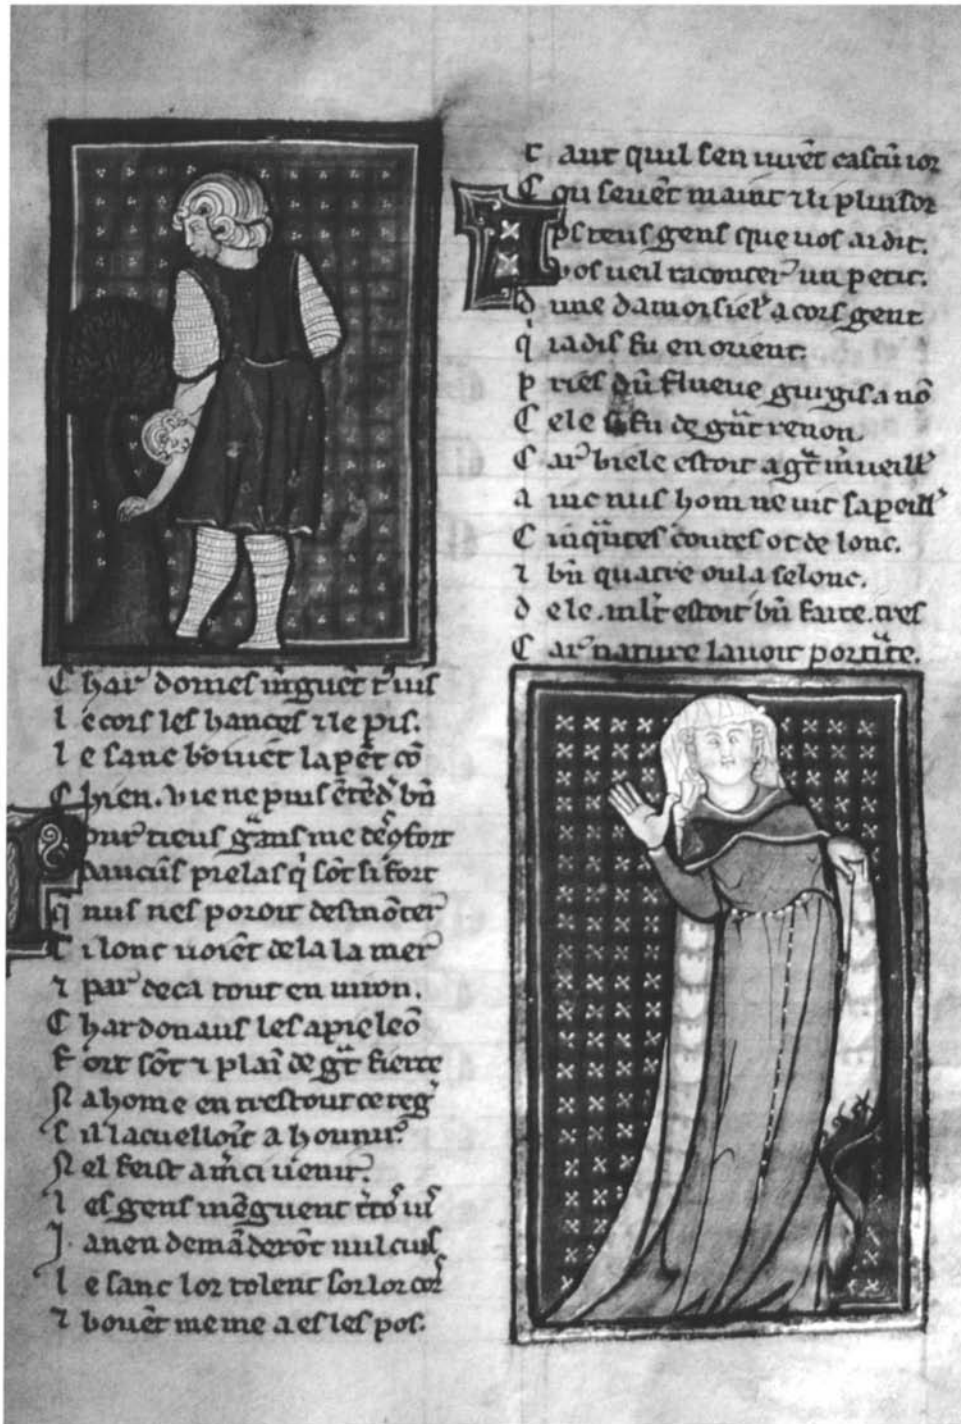 C har domes mguēt t' uis
l e cors les hances ⁊ le pis.
l e sanc boiuēt la pēt cō
C hien.
our tieus gans me
prelas q' sōt si fort
q nus nes poroit desmōter
C il ont uoiēt de la la mer
⁊ par deca tout en uiron.
C hardonaus les apiele ō
F ort sōt ⁊ plai de gt fierte
N a home en trestout ce reg
S il lacuelloit a hounir
N el feist a mci uenir
l es gens mēguent
J a nen demāderōt nul cuis
l e sanc lor tolent sor lor cors
⁊ bouēt meme a es les pos.
t ant quil sen uiuēt cascū ior
C ou seuēt maint ⁊ li plusor
ps teus gens que uos ai dit.
vos ueil raconter un petit.
d une damoisiel' a cors gent
q' iadis fu en orient.
p ries dū flueue girgis a nō
C ele fu de gt renon
C ar biele estoit a gt m'ueill'
a inc nus hom ne uit sa peill'
C inqutes coutes ot de lonc.
⁊ bn quatre ou la selonc.
d ele. mlt estoit bn faite. tres
C ar nature lauoit portite.